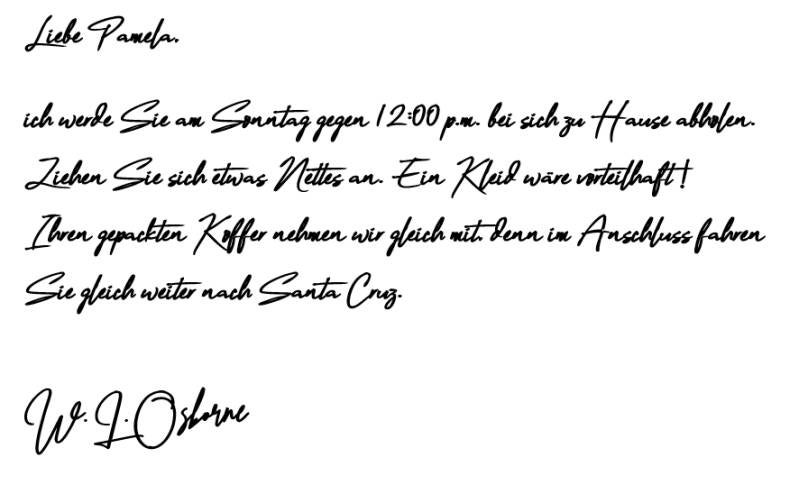 Liebe Pamela,
ich werde Sie am Sonntag gegen 12:00 p.m. bei sich zu Hause abholen.
Ziehen Sie sich etwas Nettes an. Ein Kleid wäre vorteilhaft!
Ihren gepackten Koffer nehmen wir gleich mit, denn im Anschluss fahren
Sie gleich weiter nach Santa Cruz.
W. L. Osborne